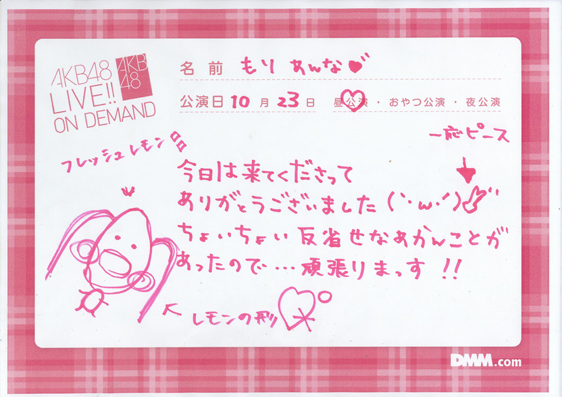 AKB48
LIVE!!
ON DEMAND
AKB
48
名前 もり あんな
公演日 10月23日 昼公演・おやつ公演・夜公演
一応ピース
フレッシュレモン
今日は来てくださって
ありがとうございました(`・ω・´)
ちょいちょい反省せなあかんことが
あったので…頑張りまっす!!
レモンの形
DMM.com